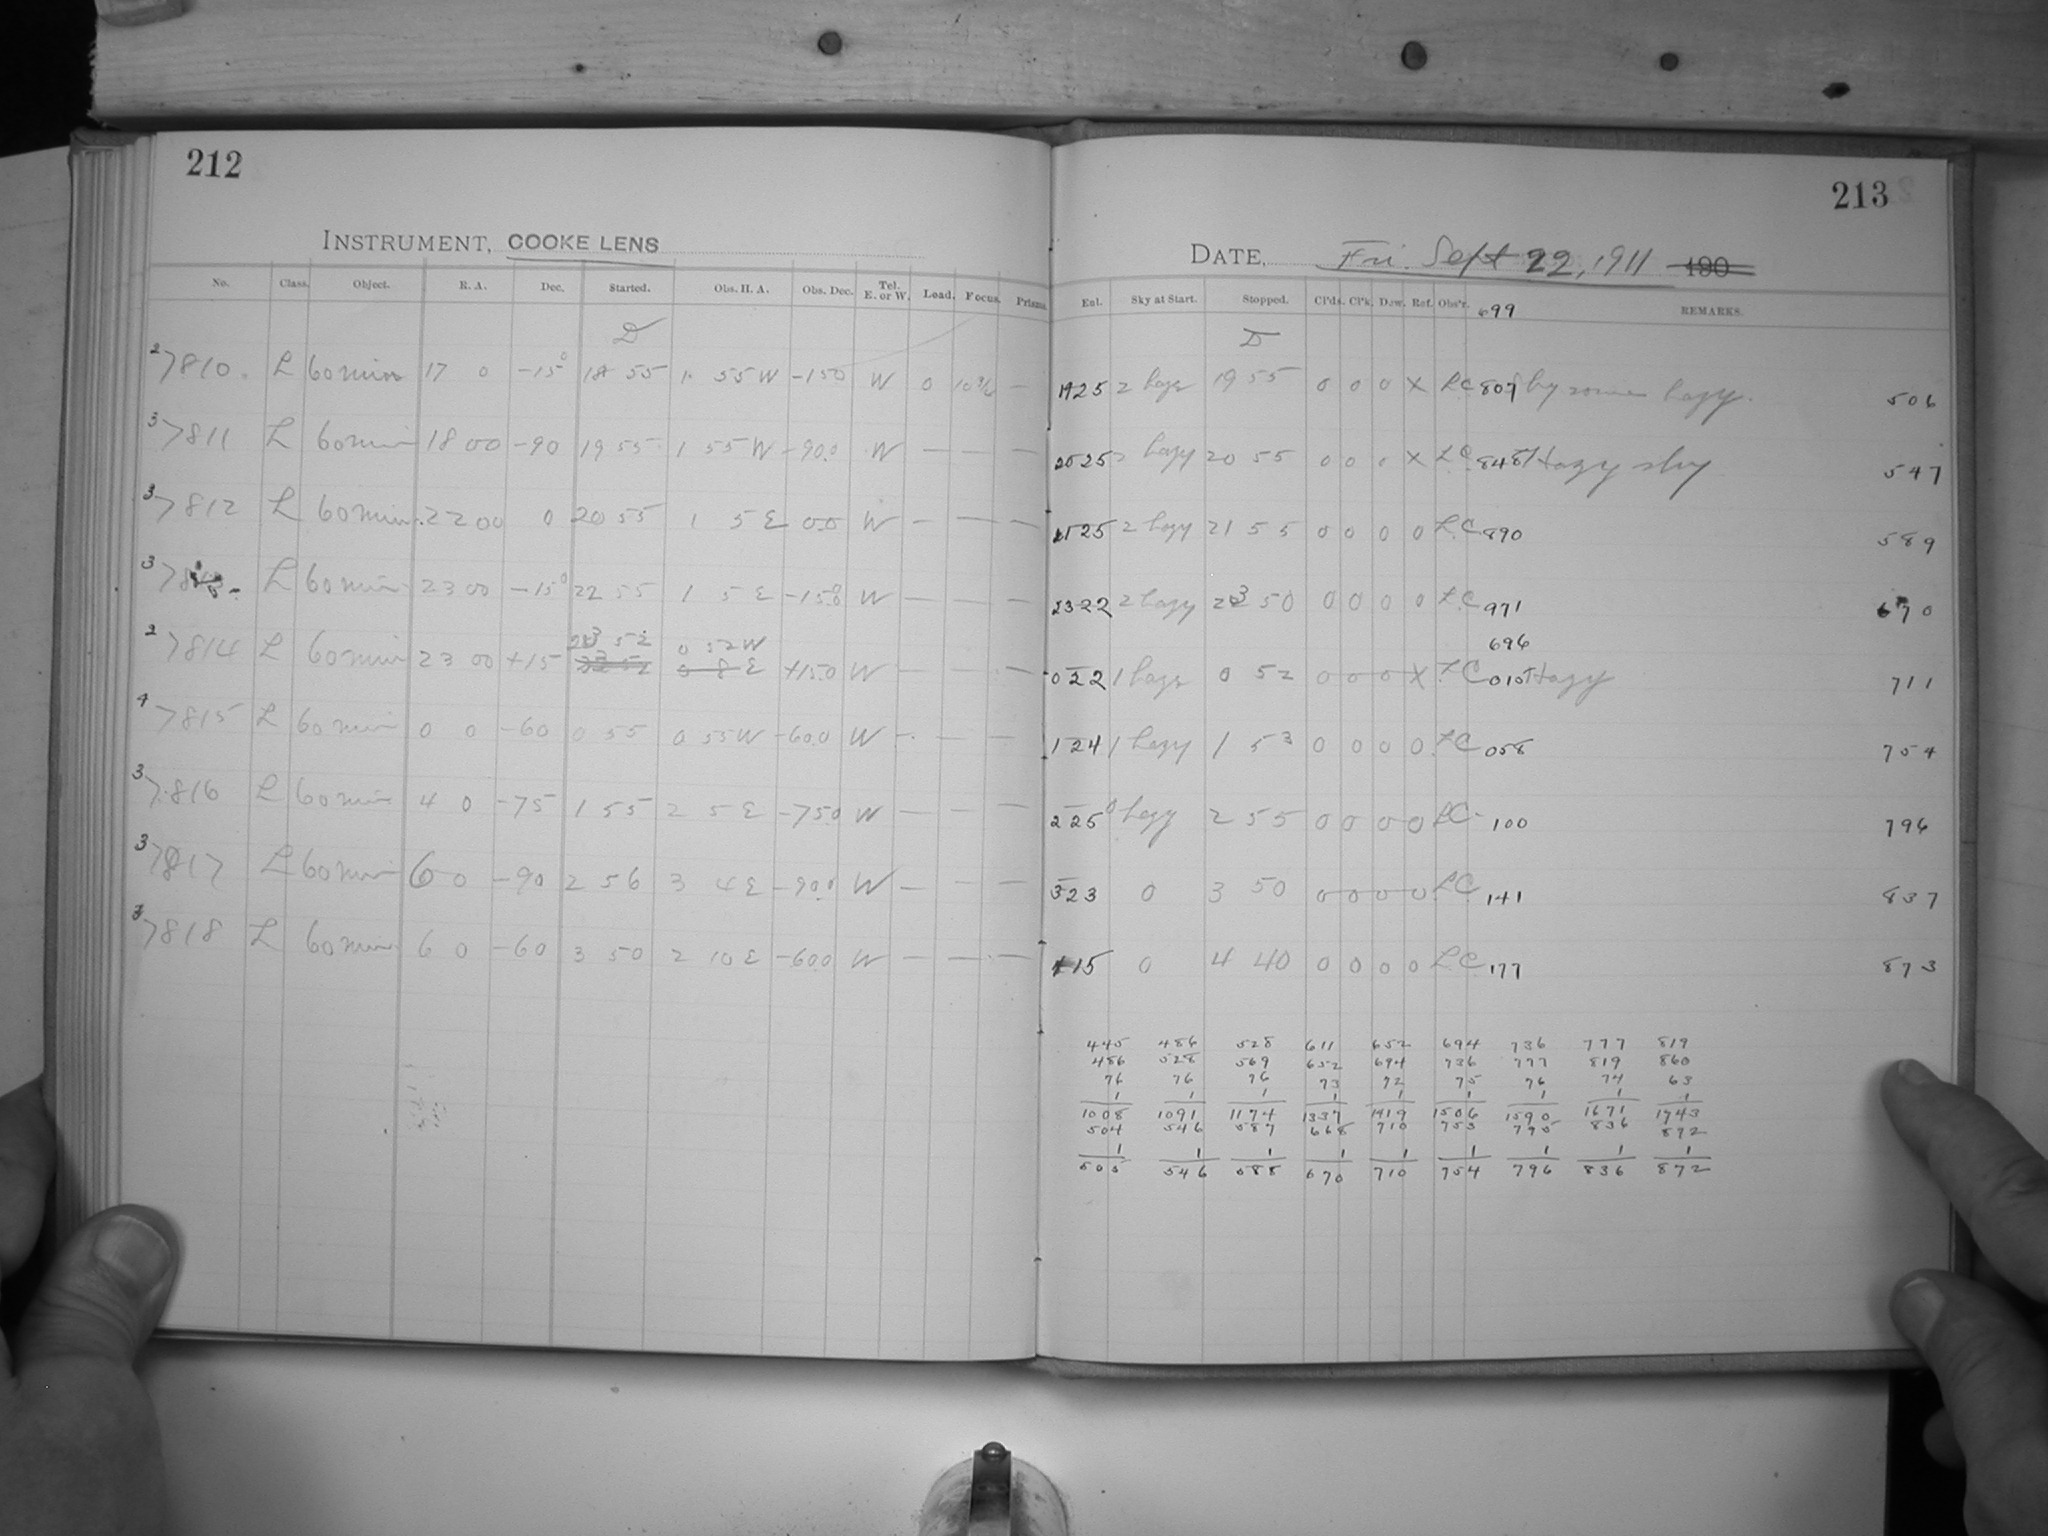 212
INSTRUMENT, COOKE LENS
No. Class. Object. R. A. Dec. Started. Obs. H. A. Obs. Dec. Tel. E. or W. Load. Focus. Prisms.
D
2 7810. L 60 min 17 0 -15 0 18 55 1 55 W -15 0 W 0 —
3 7811 L 60 min 18 00 -90 19 55 1 55 W -90.0 W — — —
3 7812 L 60 min 22 00 0 20 55 1 5 E 0.0 W — — —
3 L 60 min 23 00 -15 0 22 55 1 5 E -15.0 W — — —
23 52 0 52 W
2 7814 L 60 min 23 00 +15 0 8 E +15.0 W — — —
4 7815 L 60 min 0 0 -60 0 55 0 55 W -60.0 W — — —
3 7816 L 60 min 4 0 -75 1 55 2 5 E -75.0 W — — —
3 7817 L 60 min 6 0 -90 2 56 3 4 E -90.0 W — — —
3 7818 L 60 min 6 0 -60 3 50 2 10 E -60.0 W — — —
213
DATE, Fri. Sept 22, 1911 190
Enl. Sky at Start. Stopped. Cl'ds. Cl'k. Dew. Ref. Obs'r. REMARKS.
699
D
19 25 2 hazy 19 55 0 0 0 X LC 807 hazy. 506
20 25 2 hazy 20 55 0 0 0 X LC 848 Hazy sky 547
21 25 2 hazy 21 55 0 0 0 0 LC 890 589
23 22 2 hazy 23 50 0 0 0 0 LC 971 670
696
0 22 1 hazy 0 52 0 0 0 X LC 010 Hazy 711
1 24 1 hazy 1 53 0 0 0 0 LC 058 754
2 25 0 hazy 2 55 0 0 0 0 LC 100 796
3 23 0 3 50 0 0 0 0 LC 141 837
4 15 0 4 40 0 0 0 0 LC 177 873
445 486 528 611 652 694 736 777 819
486 528 569 652 694 736 777 819 860
76 76 76 73 72 75 76 74 63
1 1 1 1 1 1 1 1 1
1008 1091 1174 1337 1419 1506 1590 1671 1743
504 546 587 668 710 753 795 836 872
1 1 1 1 1 1 1 1 1
505 546 588 670 710 754 796 836 872